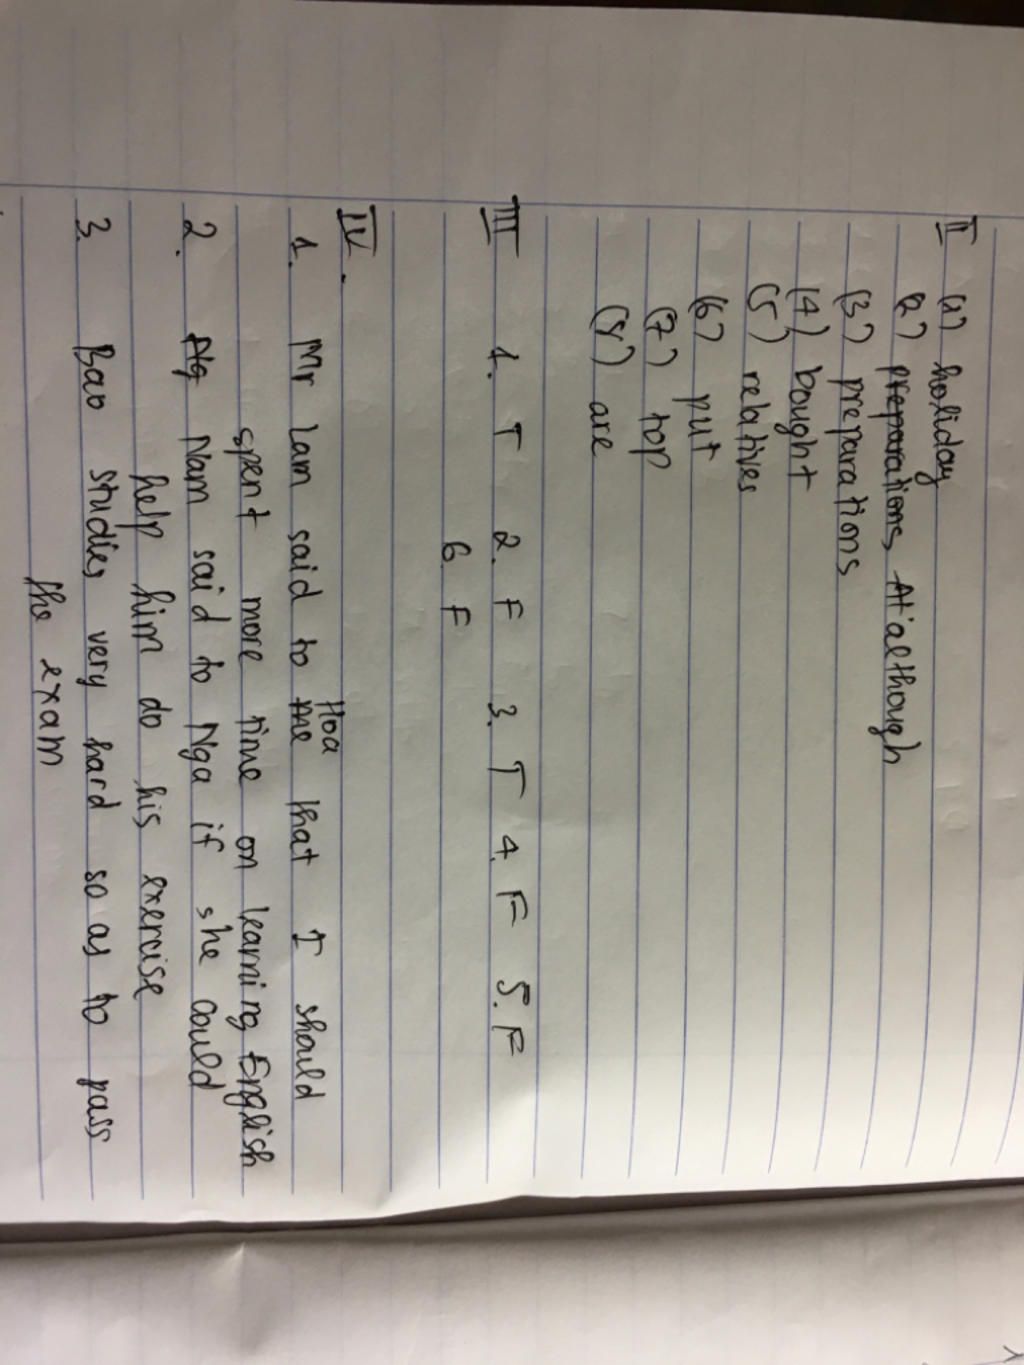 II (1) holiday
(2) preparations, At although
(3) preparations
(4) bought
(5) relatives
(6) put
(7) top
(8) are
III 1. T 2. F 3. T 4. F 5. F
6. F
IV.
Hoa
1. Mr Lam said to me that I should
spent more time on learning English
2. Ng Nam said to Nga if she could
help him do his exercise
3. Bao studies very hard so as to pass
the exam